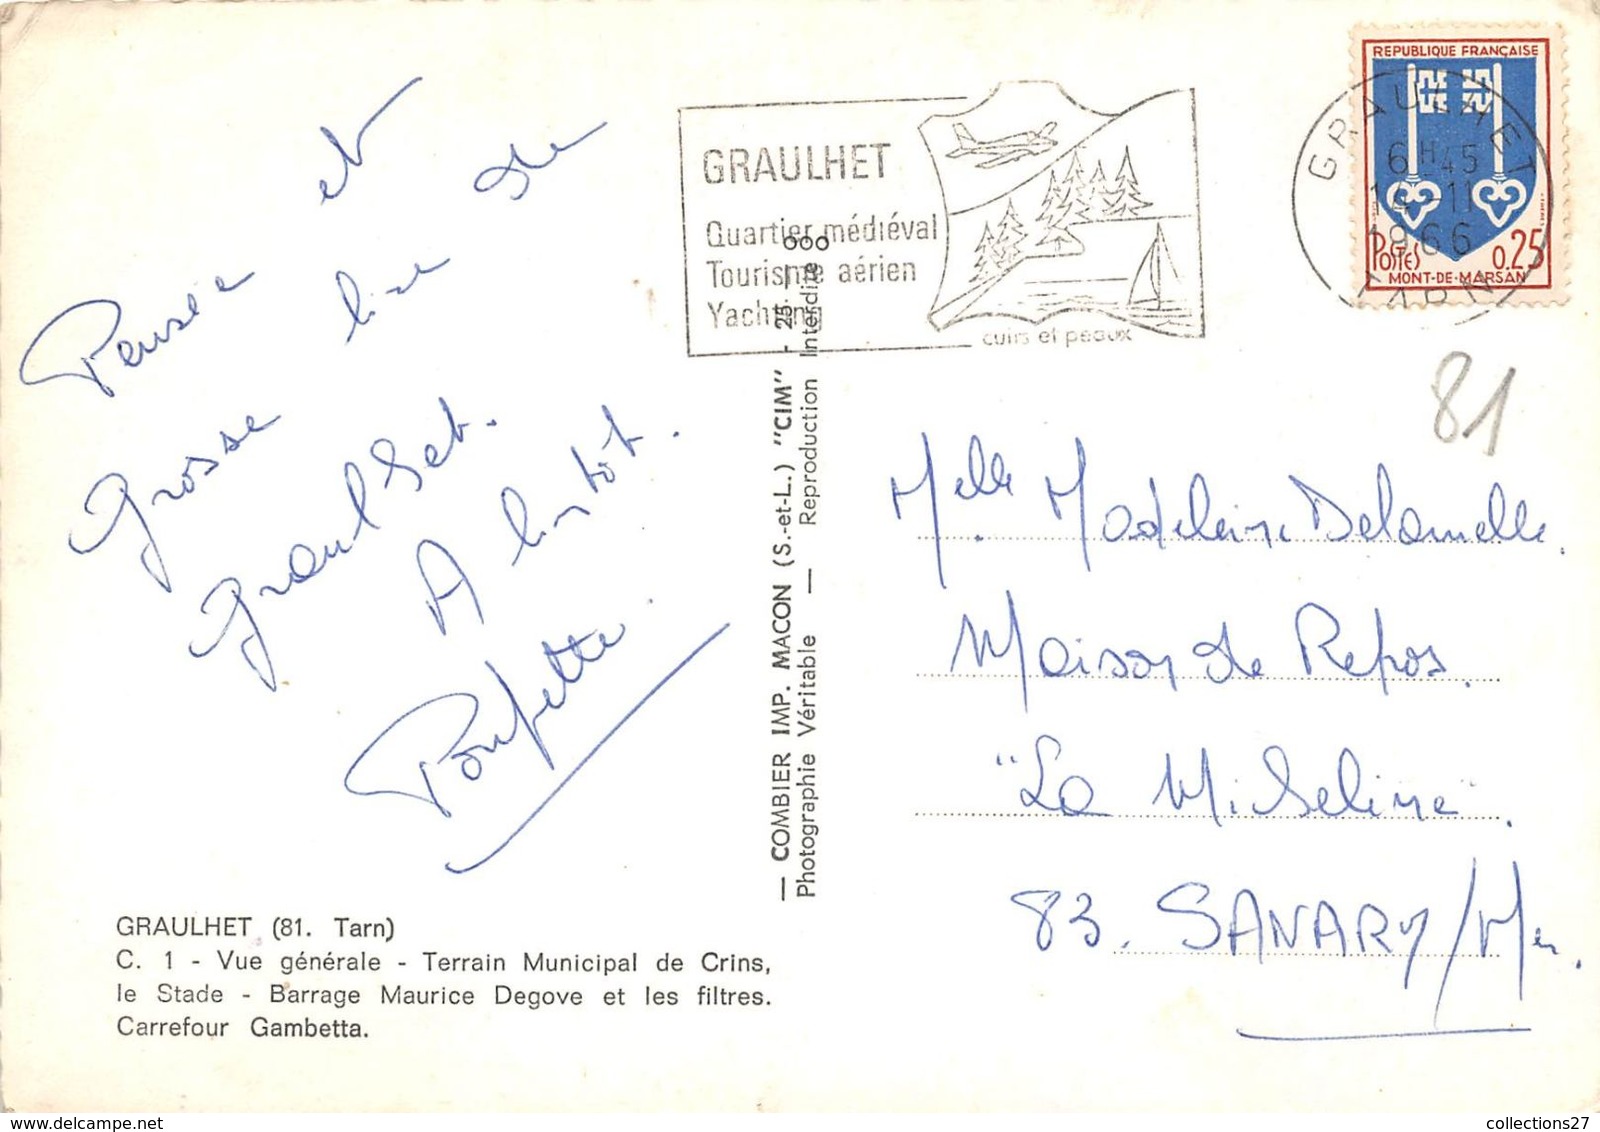 Pensée et
Grosse bise de
Graulhet.
A bientôt.
Poupette
GRAULHET (81. Tarn)
C. 1 - Vue générale - Terrain Municipal de Crins,
le Stade - Barrage Maurice Degove et les filtres.
Carrefour Gambetta.
— COMBIER IMP. MACON (S.-et-L.) "CIM" - 25 —
Photographie Véritable — Reproduction Interdite ooo
GRAULHET
Quartier médiéval
Tourisme aérien
Yachting
cuirs et peaux
GRAULHET
6H45
14-11
1966
TARN
REPUBLIQUE FRANÇAISE
POSTES 0.25
MONT-DE-MARSAN
81
Melle. Madeleine Delamelle.
Maison de Repos.
"La Micheline".
83. SANARY/Mer.
collections27